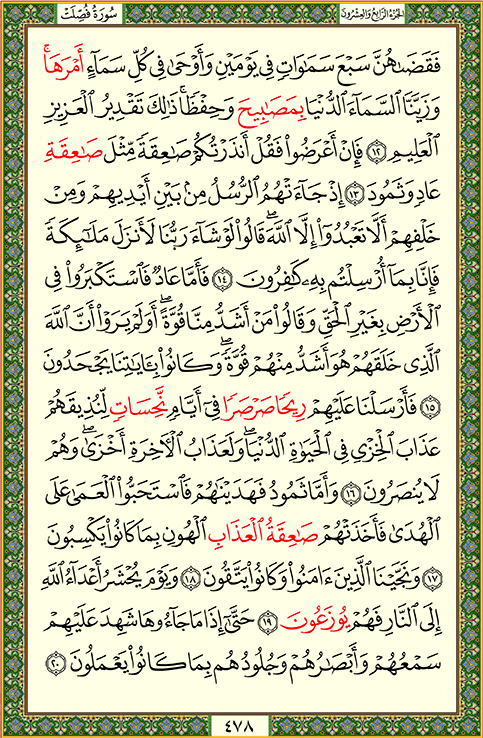 سُورَةُ فُصِّلَتْ الجُزْءُ الرَّابِعُ وَالعِشْرُونَ
فَقَضَىٰهُنَّ سَبْعَ سَمَٰوَاتٖ فِي يَوْمَيْنِ وَأَوْحَىٰ فِي كُلِّ سَمَآءٍ أَمْرَهَاۚ
وَزَيَّنَّا ٱلسَّمَآءَ ٱلدُّنْيَا بِمَصَٰبِيحَ وَحِفْظٗاۚ ذَٰلِكَ تَقْدِيرُ ٱلْعَزِيزِ
ٱلْعَلِيمِ ١٢ فَإِنْ أَعْرَضُواْ فَقُلْ أَنذَرْتُكُمْ صَٰعِقَةٗ مِّثْلَ صَٰعِقَةِ
عَادٖ وَثَمُودَ ١٣ إِذْ جَآءَتْهُمُ ٱلرُّسُلُ مِنۢ بَيْنِ أَيْدِيهِمْ وَمِنْ
خَلْفِهِمْ أَلَّا تَعْبُدُوٓاْ إِلَّا ٱللَّهَۖ قَالُواْ لَوْ شَآءَ رَبُّنَا لَأَنزَلَ مَلَٰٓئِكَةٗ
فَإِنَّا بِمَآ أُرْسِلْتُم بِهِۦ كَٰفِرُونَ ١٤ فَأَمَّا عَادٞ فَٱسْتَكْبَرُواْ فِي
ٱلْأَرْضِ بِغَيْرِ ٱلْحَقِّ وَقَالُواْ مَنْ أَشَدُّ مِنَّا قُوَّةًۖ أَوَلَمْ يَرَوْاْ أَنَّ ٱللَّهَ
ٱلَّذِي خَلَقَهُمْ هُوَ أَشَدُّ مِنْهُمْ قُوَّةٗۖ وَكَانُواْ بِـَٔايَٰتِنَا يَجْحَدُونَ
١٥ فَأَرْسَلْنَا عَلَيْهِمْ رِيحٗا صَرْصَرٗا فِيٓ أَيَّامٖ نَّحِسَاتٖ لِّنُذِيقَهُمْ
عَذَابَ ٱلْخِزْيِ فِي ٱلْحَيَوٰةِ ٱلدُّنْيَاۖ وَلَعَذَابُ ٱلْأٓخِرَةِ أَخْزَىٰۖ وَهُمْ
لَا يُنصَرُونَ ١٦ وَأَمَّا ثَمُودُ فَهَدَيْنَٰهُمْ فَٱسْتَحَبُّواْ ٱلْعَمَىٰ عَلَى
ٱلْهُدَىٰ فَأَخَذَتْهُمْ صَٰعِقَةُ ٱلْعَذَابِ ٱلْهُونِ بِمَا كَانُواْ يَكْسِبُونَ
١٧ وَنَجَّيْنَا ٱلَّذِينَ ءَامَنُواْ وَكَانُواْ يَتَّقُونَ ١٨ وَيَوْمَ يُحْشَرُ أَعْدَآءُ ٱللَّهِ
إِلَى ٱلنَّارِ فَهُمْ يُوزَعُونَ ١٩ حَتَّىٰٓ إِذَا مَا جَآءُوهَا شَهِدَ عَلَيْهِمْ
سَمْعُهُمْ وَأَبْصَٰرُهُمْ وَجُلُودُهُم بِمَا كَانُواْ يَعْمَلُونَ ٢٠
٤٧٨